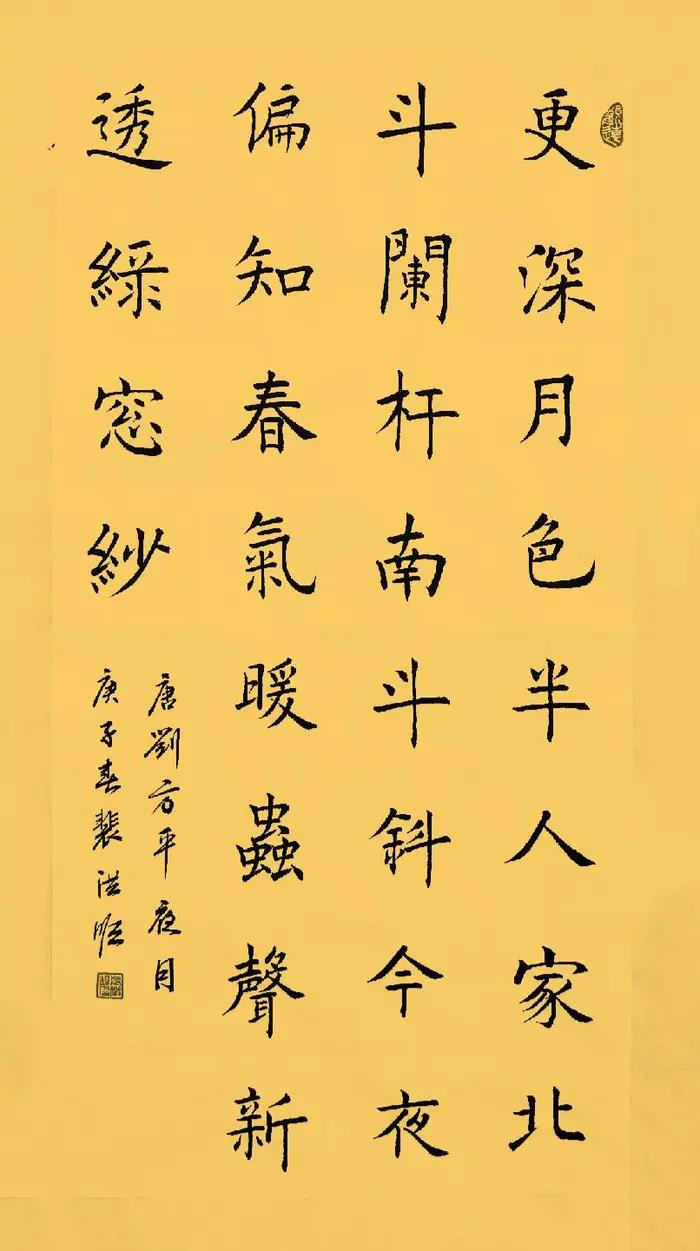 更深月色半人家北
斗闌杆南斗斜今夜
偏知春氣暖蟲聲新
透綠窓紗
唐劉方平夜月
庚子春裴洪順